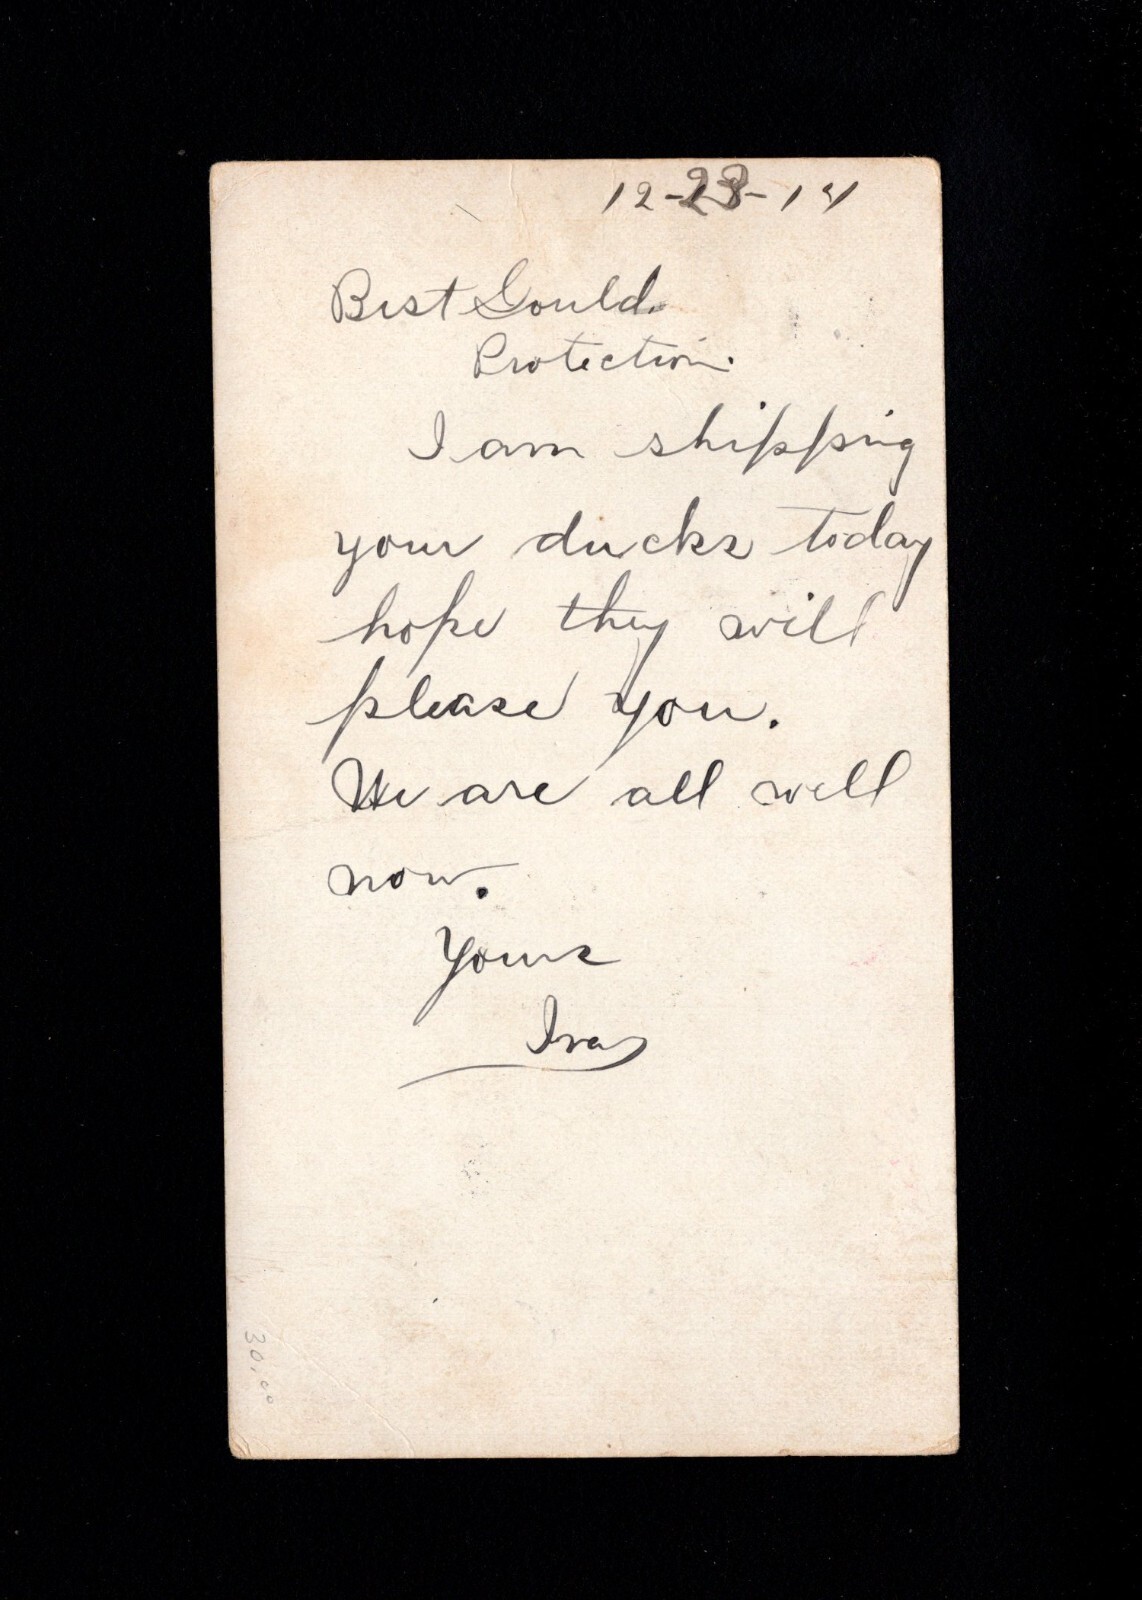 12-23-14
Bert Gould
Protection.
I am shipping
your ducks today
hope they will
please you.
We are all well
now.
Yours
Ira
30.00